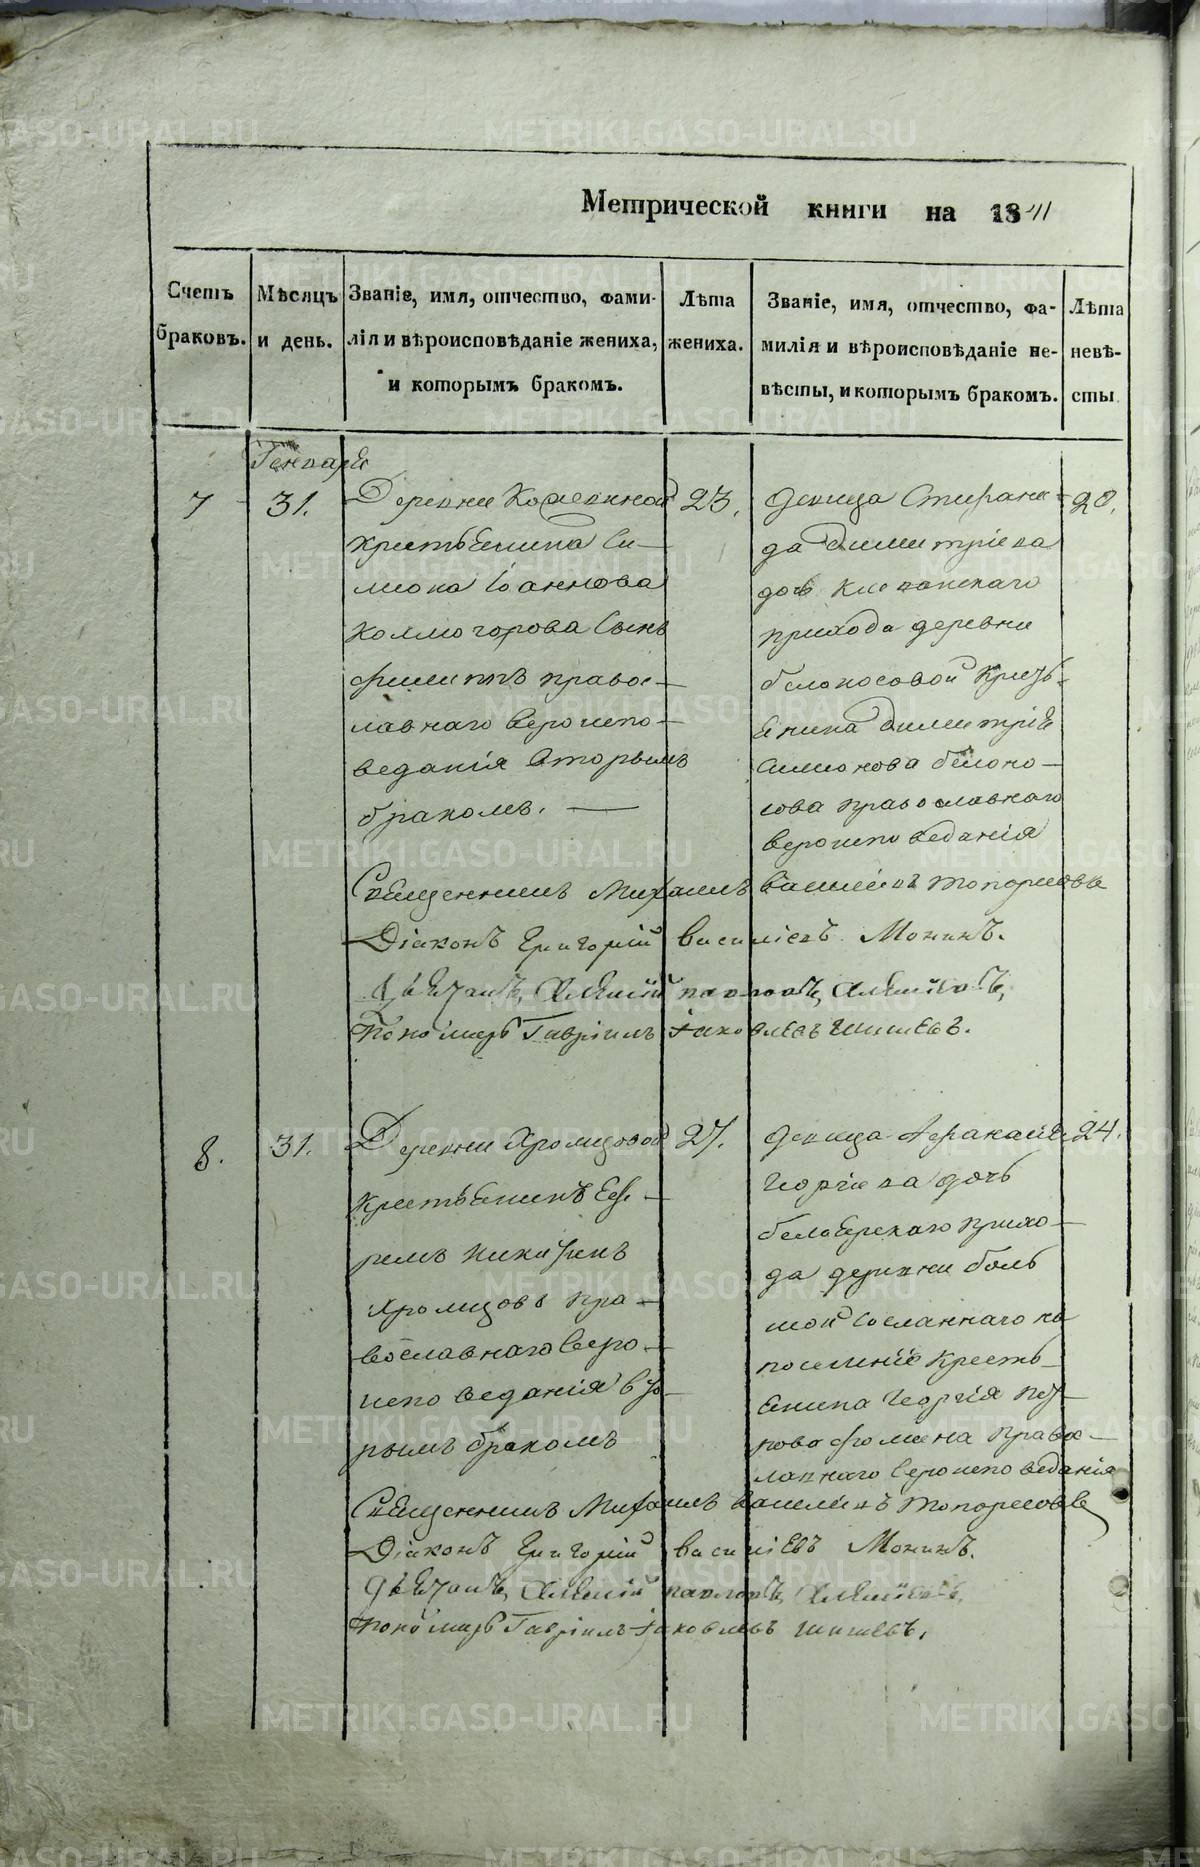 Метрической книги на 1841
Счетъ браковъ.
Мѣсяцъ и день.
Званіе, имя, отчество, фами-
лія и вѣроисповѣданіе жениха,
и которымъ бракомъ.
Лѣта жениха.
Званіе, имя, отчество, фа-
милія и вѣроисповѣданіе не-
вѣсты, и которымъ бракомъ.
Лѣта невѣ-
сты
Генваря
7
31.
Деревни Кожевиной
крестьенина Си-
миона Іоаннова
Колмогорова Сынъ
филиппъ правос-
лавнаго вероиспо-
веданія вторымъ
бракомъ.
23.
девица Стифани-
да Димитріева
дочь
прихода деревни
белоносовой Кресть-
енина Димитрія
Симионова белоно-
сова православнаго
вероисповеданія
20.
Священникъ Михаилъ Васильевъ Топорковъ
Діаконъ Григорій Василіевъ Монинъ.
Дьячокъ, Алексій Павловъ, Алексіевъ,
Пономарь Гавріилъ Іаковлевъ Шишевъ.
8.
31.
Деревни Хромцовой
крестьенинъ Еф-
ремъ Никифоровъ
Хромцовъ пра-
вославнаго веро-
исповеданія вто-
рымъ бракомъ
27.
девица
Георгіева дочь
белоерскаго прихо-
да деревни боль
шой Сосланнаго на
поселеніе кресть-
енина Георгія
фомина правос-
лавнаго вероисповеданія
24.
Священникъ Михаилъ Васильевъ Топорковъ
Діаконъ Григорій Василіевъ Монинъ.
Дьячокъ, Алексій Павловъ, Алексіевъ,
Пономарь Гавріилъ Іаковлевъ Шишевъ.
METRIKI.GASO-URAL.RU